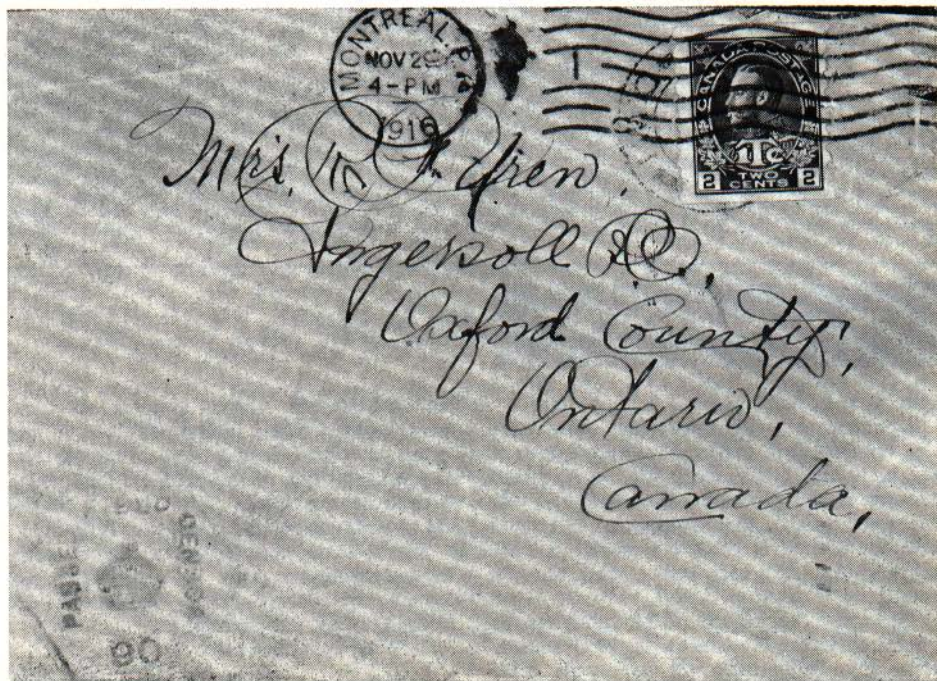 MONTREAL. P.Q.
NOV 29
4 - PM
1916
CANADA POSTAGE
1Tc
2 TWO CENTS 2
Mrs.
Ingersoll
Oxford County,
Ontario,
Canada,
PASSED CENSOR
90